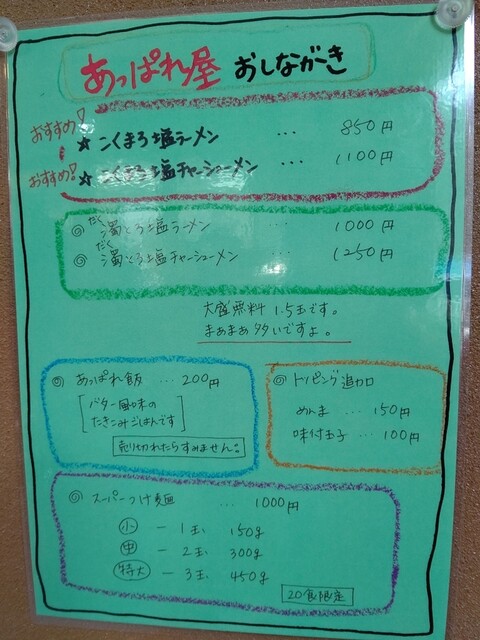 あっぱれ屋 おしながき
おすすめ! ☆ こくまろ塩ラーメン ... 850円
おすすめ! ☆ こくまろ塩チャーシューメン ... 1100円
◎ 濁とろ塩ラーメン ... 1000円
だく
◎ 濁とろ塩チャーシューメン ... 1250円
だく
大盛無料 1.5玉です。
まあまあ多いですよ。
◎ あっぱれ飯 ... 200円
[バター風味の
たきこみごはんです]
売り切れたらすみません。
◎ トッピング追加
めんま ... 150円
味付玉子 ... 100円
◎ スーパーつけ麺 ... 1000円
小 - 1玉 150g
中 - 2玉 300g
特大 - 3玉 450g
20食限定